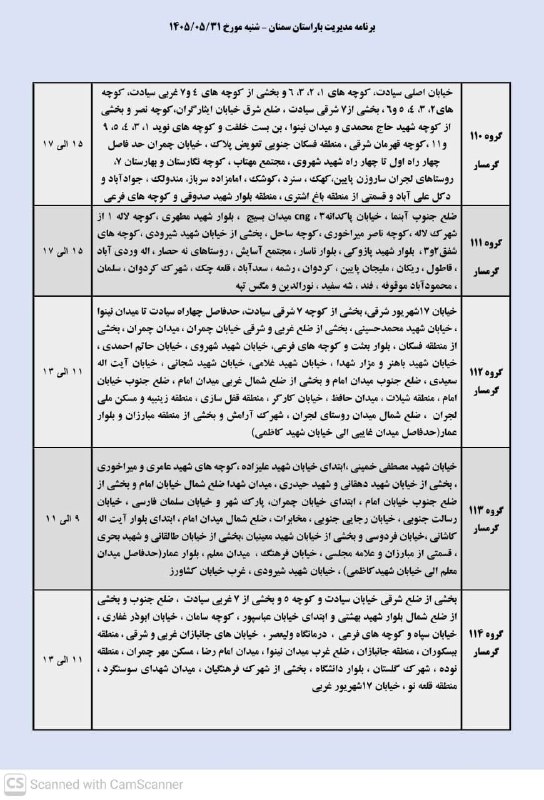 برنامه مدیریت باراستان سمنان - شنبه مورخ ۱۴۰۵/۰۵/۳۱
گروه ۱۱۰
گرمسار
خیابان اصلی سیادت، کوچه های ۱، ۲، ۳، ۶ و بخشی از کوچه های ۴ و۷ غربی سیادت، کوچه
های۲، ۳، ۴، ۵ و۶ ، بخشی از۷ شرقی سیادت ، ضلع شرق خیابان ایثارگران،کوچه نصر و بخشی
از کوچه شهید حاج محمدی و میدان نینوا ، بن بست خلفت و کوچه های نوید ۱، ۳، ۴، ۵، ۹
و ۱۱ ، کوچه قهرمان شرقی ، منطقه فسکان جنوبی تعویض پلاک ، خیابان چمران حد فاصل
چهار راه اول تا چهار راه شهید شهروی ، مجتمع مهتاب ، کوچه نگارستان و بهارستان ۷،
روستاهای لجران ساروزن پایین،کهک ، سنرد ، کوشک ، امامزاده سرباز، مندولک ، جوادآباد و
دکل علی آباد و قسمتی از منطقه باغ اشتری ، منطقه بلوار شهید صدوقی و کوچه های فرعی
۱۵ الی ۱۷
گروه ۱۱۱
گرمسار
ضلع جنوب آبنما ، خیابان پاکدانه۳ ، cng میدان بسیج ، بلوار شهید مطهری ،کوچه لاله ۱ از
شهرک لاله ، کوچه ناصر میراخوری ، کوچه ساحل ، بخشی از خیابان شهید شیرودی ، کوچه های
شفق۲و۳ ، بلوار شهید پازوکی ، بلوار ناسار ، مجتمع آسایش ، روستاهای نه حصار ، اله وردی آباد
، قاطول ، ریکان ، ملیجان پایین ، کردوان ، رشمه ، سعدآباد ، قلعه چک ، شهرک کردوان ، سلمان
، محمودآباد موقوفه ، فند ، شه سفید ، نورالدین و مگس تپه
۱۵ الی ۱۷
گروه ۱۱۲
گرمسار
خیابان ۱۷شهریور شرقی، بخشی از کوچه ۷ شرقی سیادت، حدفاصل چهاراه سیادت تا میدان نینوا
، خیابان شهید محمدحسینی ، بخشی از ضلع غربی و شرقی خیابان چمران ، میدان چمران ، بخشی
از منطقه فسکان ، بلوار بعثت و کوچه های فرعی، خیابان شهید شهروی ، خیابان حاتم احمدی ،
خیابان شهید باهنر و مزار شهدا ، خیابان شهید غلامی، خیابان شهید شجانی ، خیابان آیت اله
سعیدی ، ضلع جنوب میدان امام و بخشی از ضلع شمال غربی میدان امام ، ضلع جنوب خیابان
امام ، منطقه شیلات ، میدان حافظ ، خیابان کارگر ، منطقه قفل سازی ، منطقه زینبیه و مسکن ملی
لجران ، ضلع شمال میدان روستای لجران ، شهرک آرامش و بخشی از منطقه مبارزان و بلوار
عمار(حدفاصل میدان غایبی الی خیابان شهید کاظمی)
۱۱ الی ۱۳
گروه ۱۱۳
گرمسار
خیابان شهید مصطفی خمینی ،ابتدای خیابان شهید علیزاده ،کوچه های شهید عامری و میراخوری
، بخشی از خیابان شهید دهقانی و شهید حیدری ، میدان شهدا ضلع شمال خیابان امام و بخشی از
ضلع جنوب خیابان امام ، ابتدای خیابان چمران، پارک شهر و خیابان سلمان فارسی ، خیابان
رسالت جنوبی ، خیابان رجایی جنوبی ، مخابرات ، ضلع شمال میدان امام ، ابتدای بلوار آیت اله
کاشانی ،خیابان فردوسی و بخشی از خیابان شهید معینیان ،بخشی از خیابان طالقانی و شهید بحری
، قسمتی از مبارزان و علامه مجلسی ، خیابان فرهنگ ، میدان معلم ، بلوار عمار(حدفاصل میدان
معلم الی خیابان شهیدکاظمی) ، خیابان شهید شیرودی ، غرب خیابان کشاورز
۹ الی ۱۱
گروه ۱۱۴
گرمسار
بخشی از ضلع شرقی خیابان سیادت و کوچه ۵ و بخشی از ۷ غربی سیادت ، ضلع جنوب و بخشی
از ضلع شمال بلوار شهید بهشتی و ابتدای خیابان عباسپور ، کوچه سامان ، خیابان ابوذر غفاری ،
خیابان سپاه و کوچه های فرعی ، درمانگاه ولیعصر ، خیابان های جانبازان غربی و شرقی ، منطقه
بیسکوران ، منطقه جانبازان ، ضلع غرب میدان نینوا ، میدان امام رضا ، مسکن مهر چمران ، منطقه
نوده ، شهرک گلستان ، بلوار دانشگاه ، بخشی از شهرک فرهنگیان ، میدان شهدای سوسنگرد ،
منطقه قلعه نو ، خیابان ۱۷شهریور غربی
۱۱ الی ۱۳
CS Scanned with CamScanner